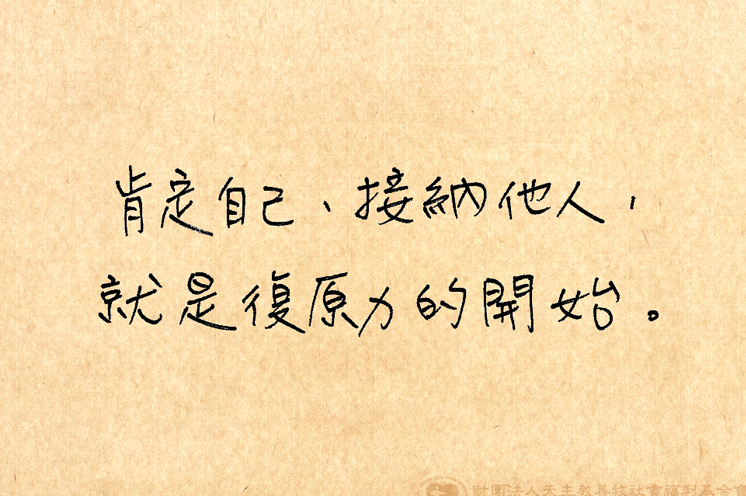 肯定自己、接納他人，
就是復原力的開始。
財團法人天主教善牧社會福利基金會